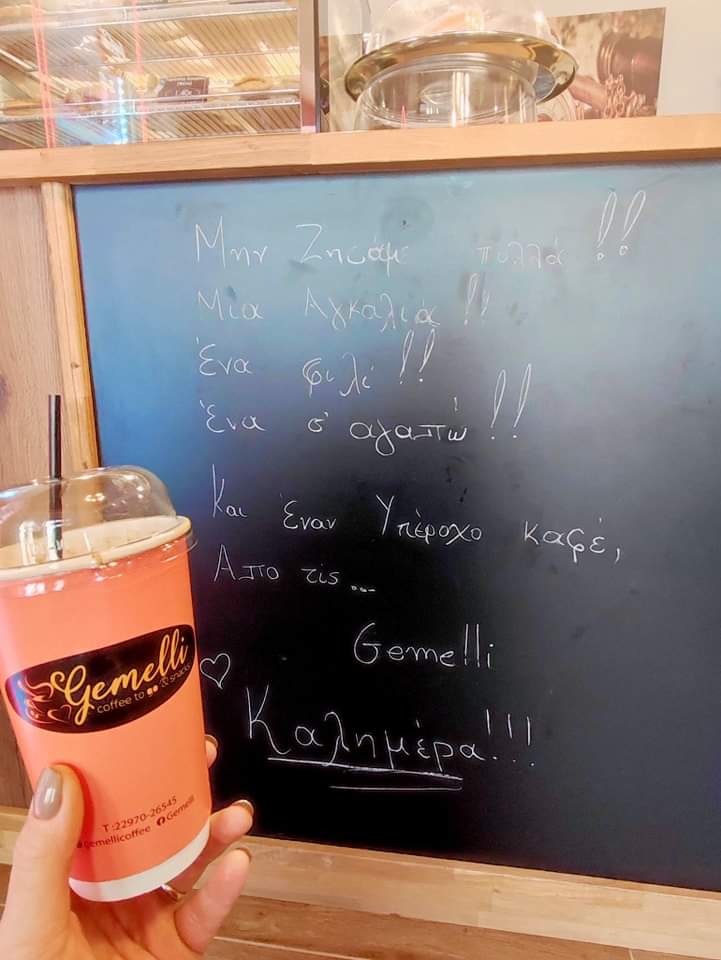 Μην Ζητάμε πολλά!!
Μία Αγκαλιά!!
Ένα φιλί!!
Ένα σ' αγαπώ!!
Και έναν Υπέροχο καφέ,
Απο τις...
Gemelli
Καλημέρα!!!
Gemelli
coffee to go & snacks
T:22970-26545
gemellicoffee Gemelli